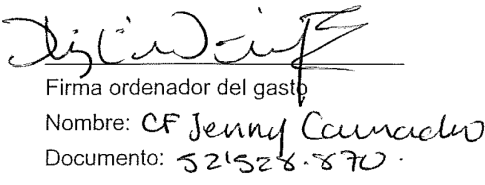 Firma ordenador del gasto
Nombre: CF Jenny Camacho
Documento: 52'528.870.